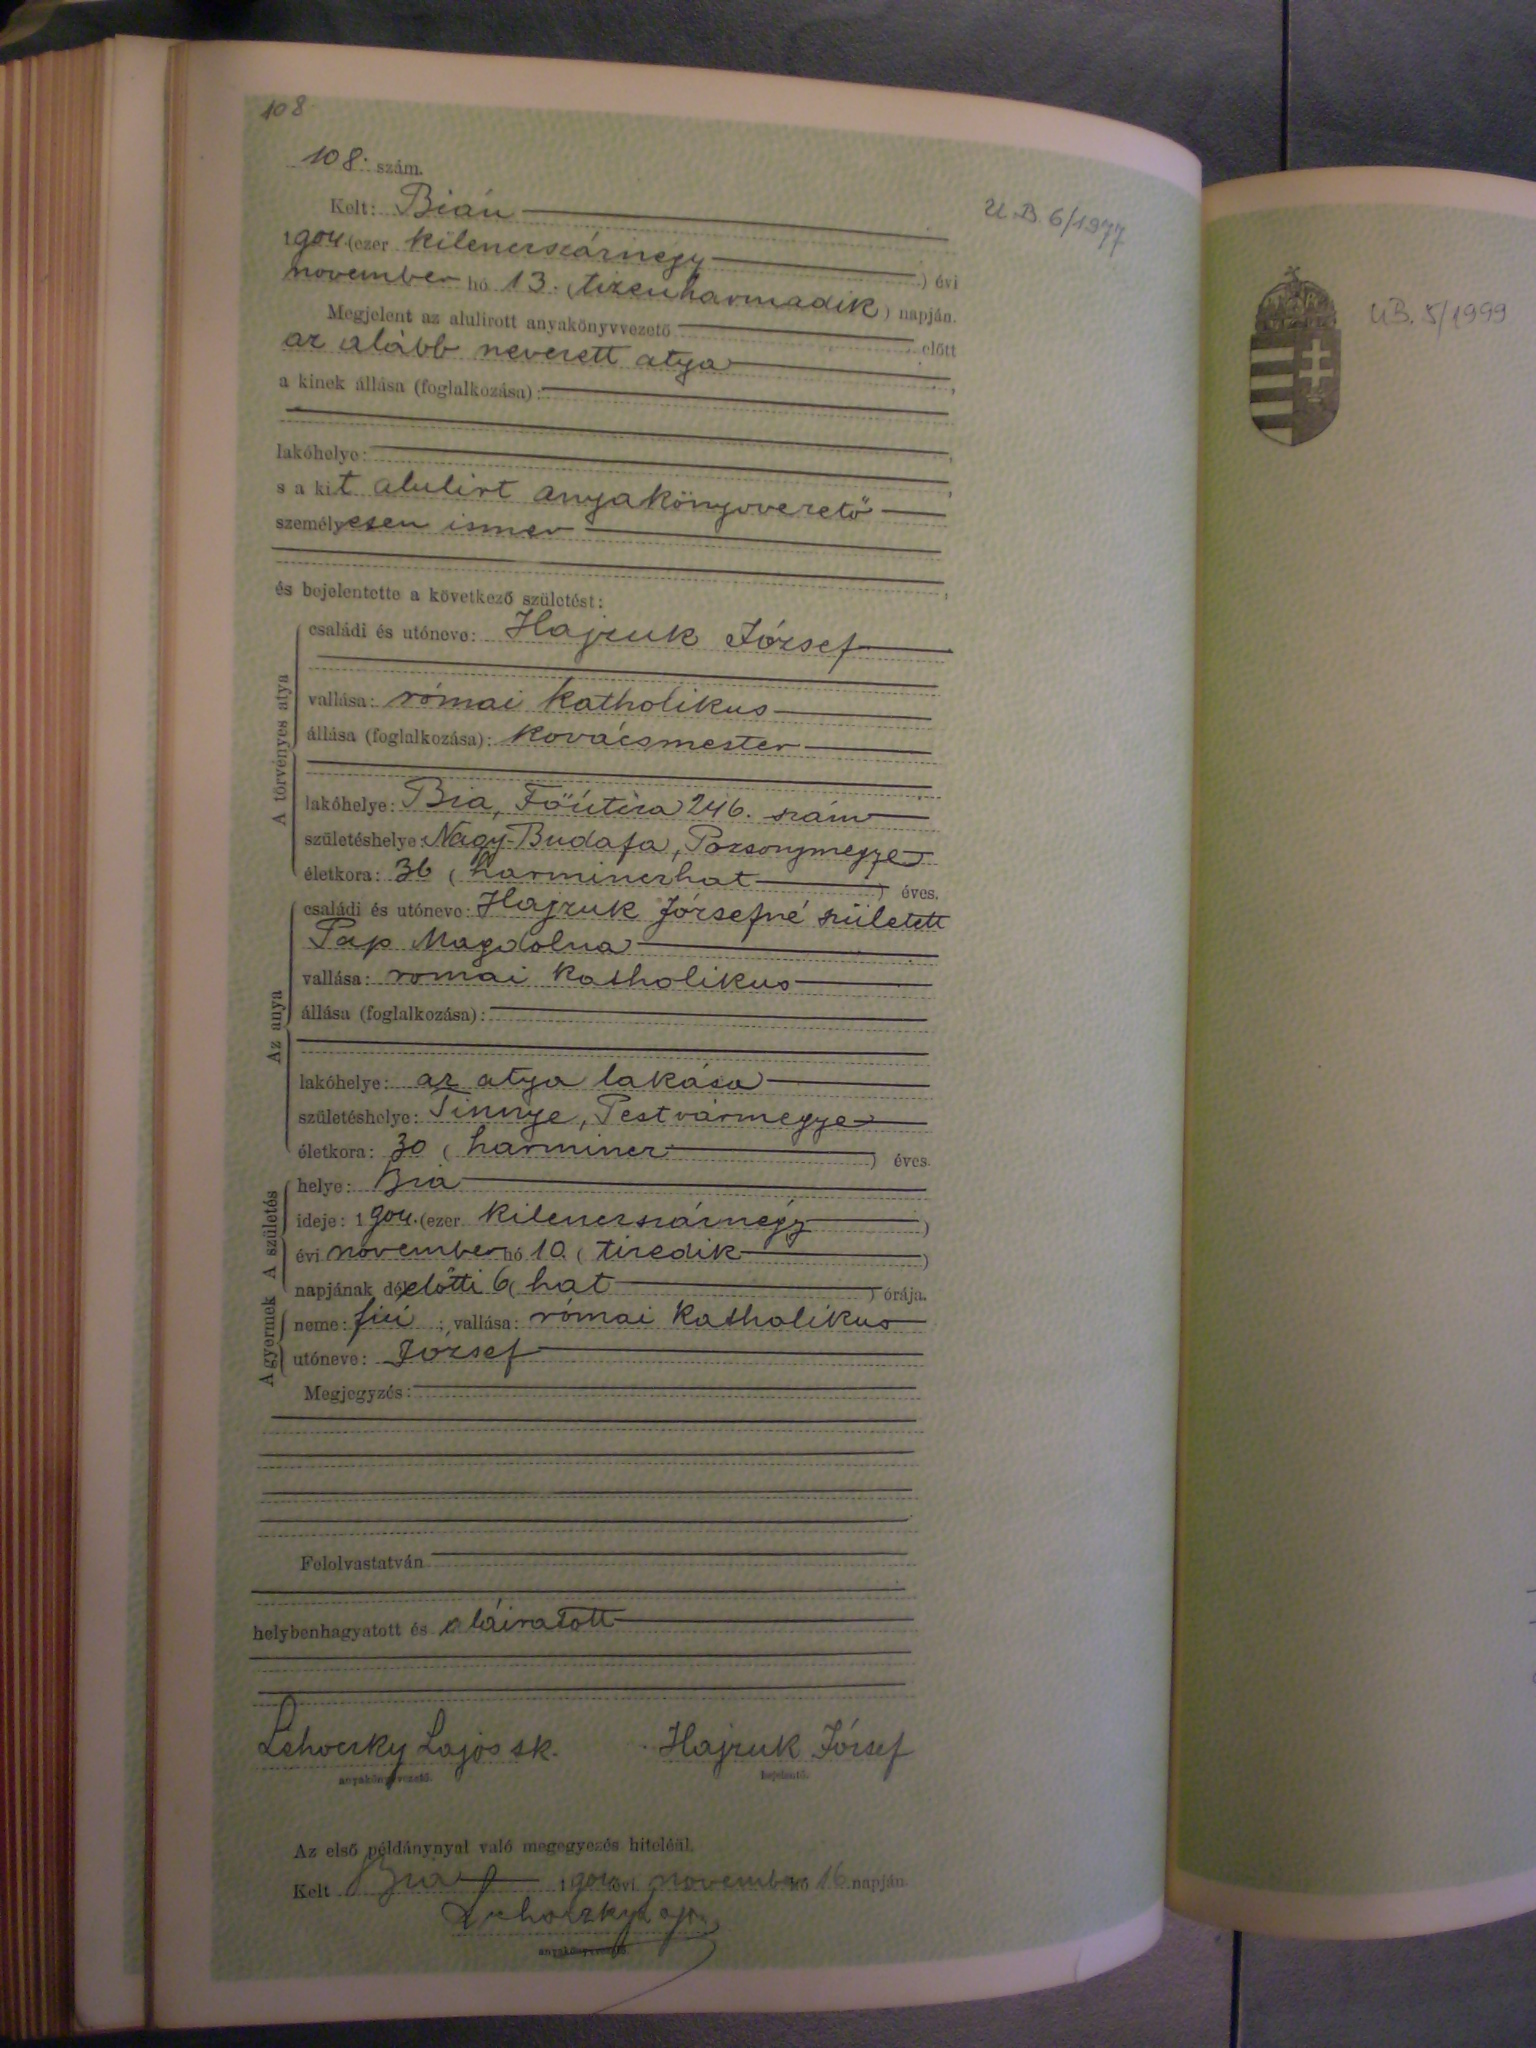 108
108. szám.
Kelt: Bián
1904. (ezer kilenczszáznégy ) évi
november hó 13. (tizenharmadik) napján.
Megjelent az alulirott anyakönyvvezető előtt
az alább nevezett atya
a kinek állása (foglalkozása):
lakóhelye:
s a kit alulirt anyakönyvvezető
személyesen ismer
és bejelentette a következő születést:
A törvényes atya
családi és utóneve: Hajzuk József
vallása: római katholikus
állása (foglalkozása): kovácsmester
lakóhelye: Bia, Főútcza 246. szám
születéshelye: Nagy-Budafa, Pozsonymegye
életkora: 36 (harminczhat ) éves.
Az anya
családi és utóneve: Hajzuk Józsefné született
Pap Magdolna
vallása: romai katholikus
állása (foglalkozása):
lakóhelye: az atya lakása
születéshelye: Tinnye, Pestvármegye
életkora: 30 (harmincz ) éves.
A születés
helye: Bia
ideje: 1904. (ezer kilenczszáznégy )
évi november hó 10. (tizedik )
napjának délelőtti 6 (hat ) órája.
A gyermek
neme: fiú ; vallása: római katholikus
utóneve: József
Megjegyzés:
Felolvastatván
helybenhagyatott és aláiratott
Lehoczky Lajos sk. Hajzuk József
anyakönyvvezető. bejelentő.
Az első példánynyal való megegyezés hiteléül.
Kelt Bia 1904 évi november hó 16 napján
Lehoczky Lajos
anyakönyvvezető.
U.B. 6/1977
U.B. 5/1999